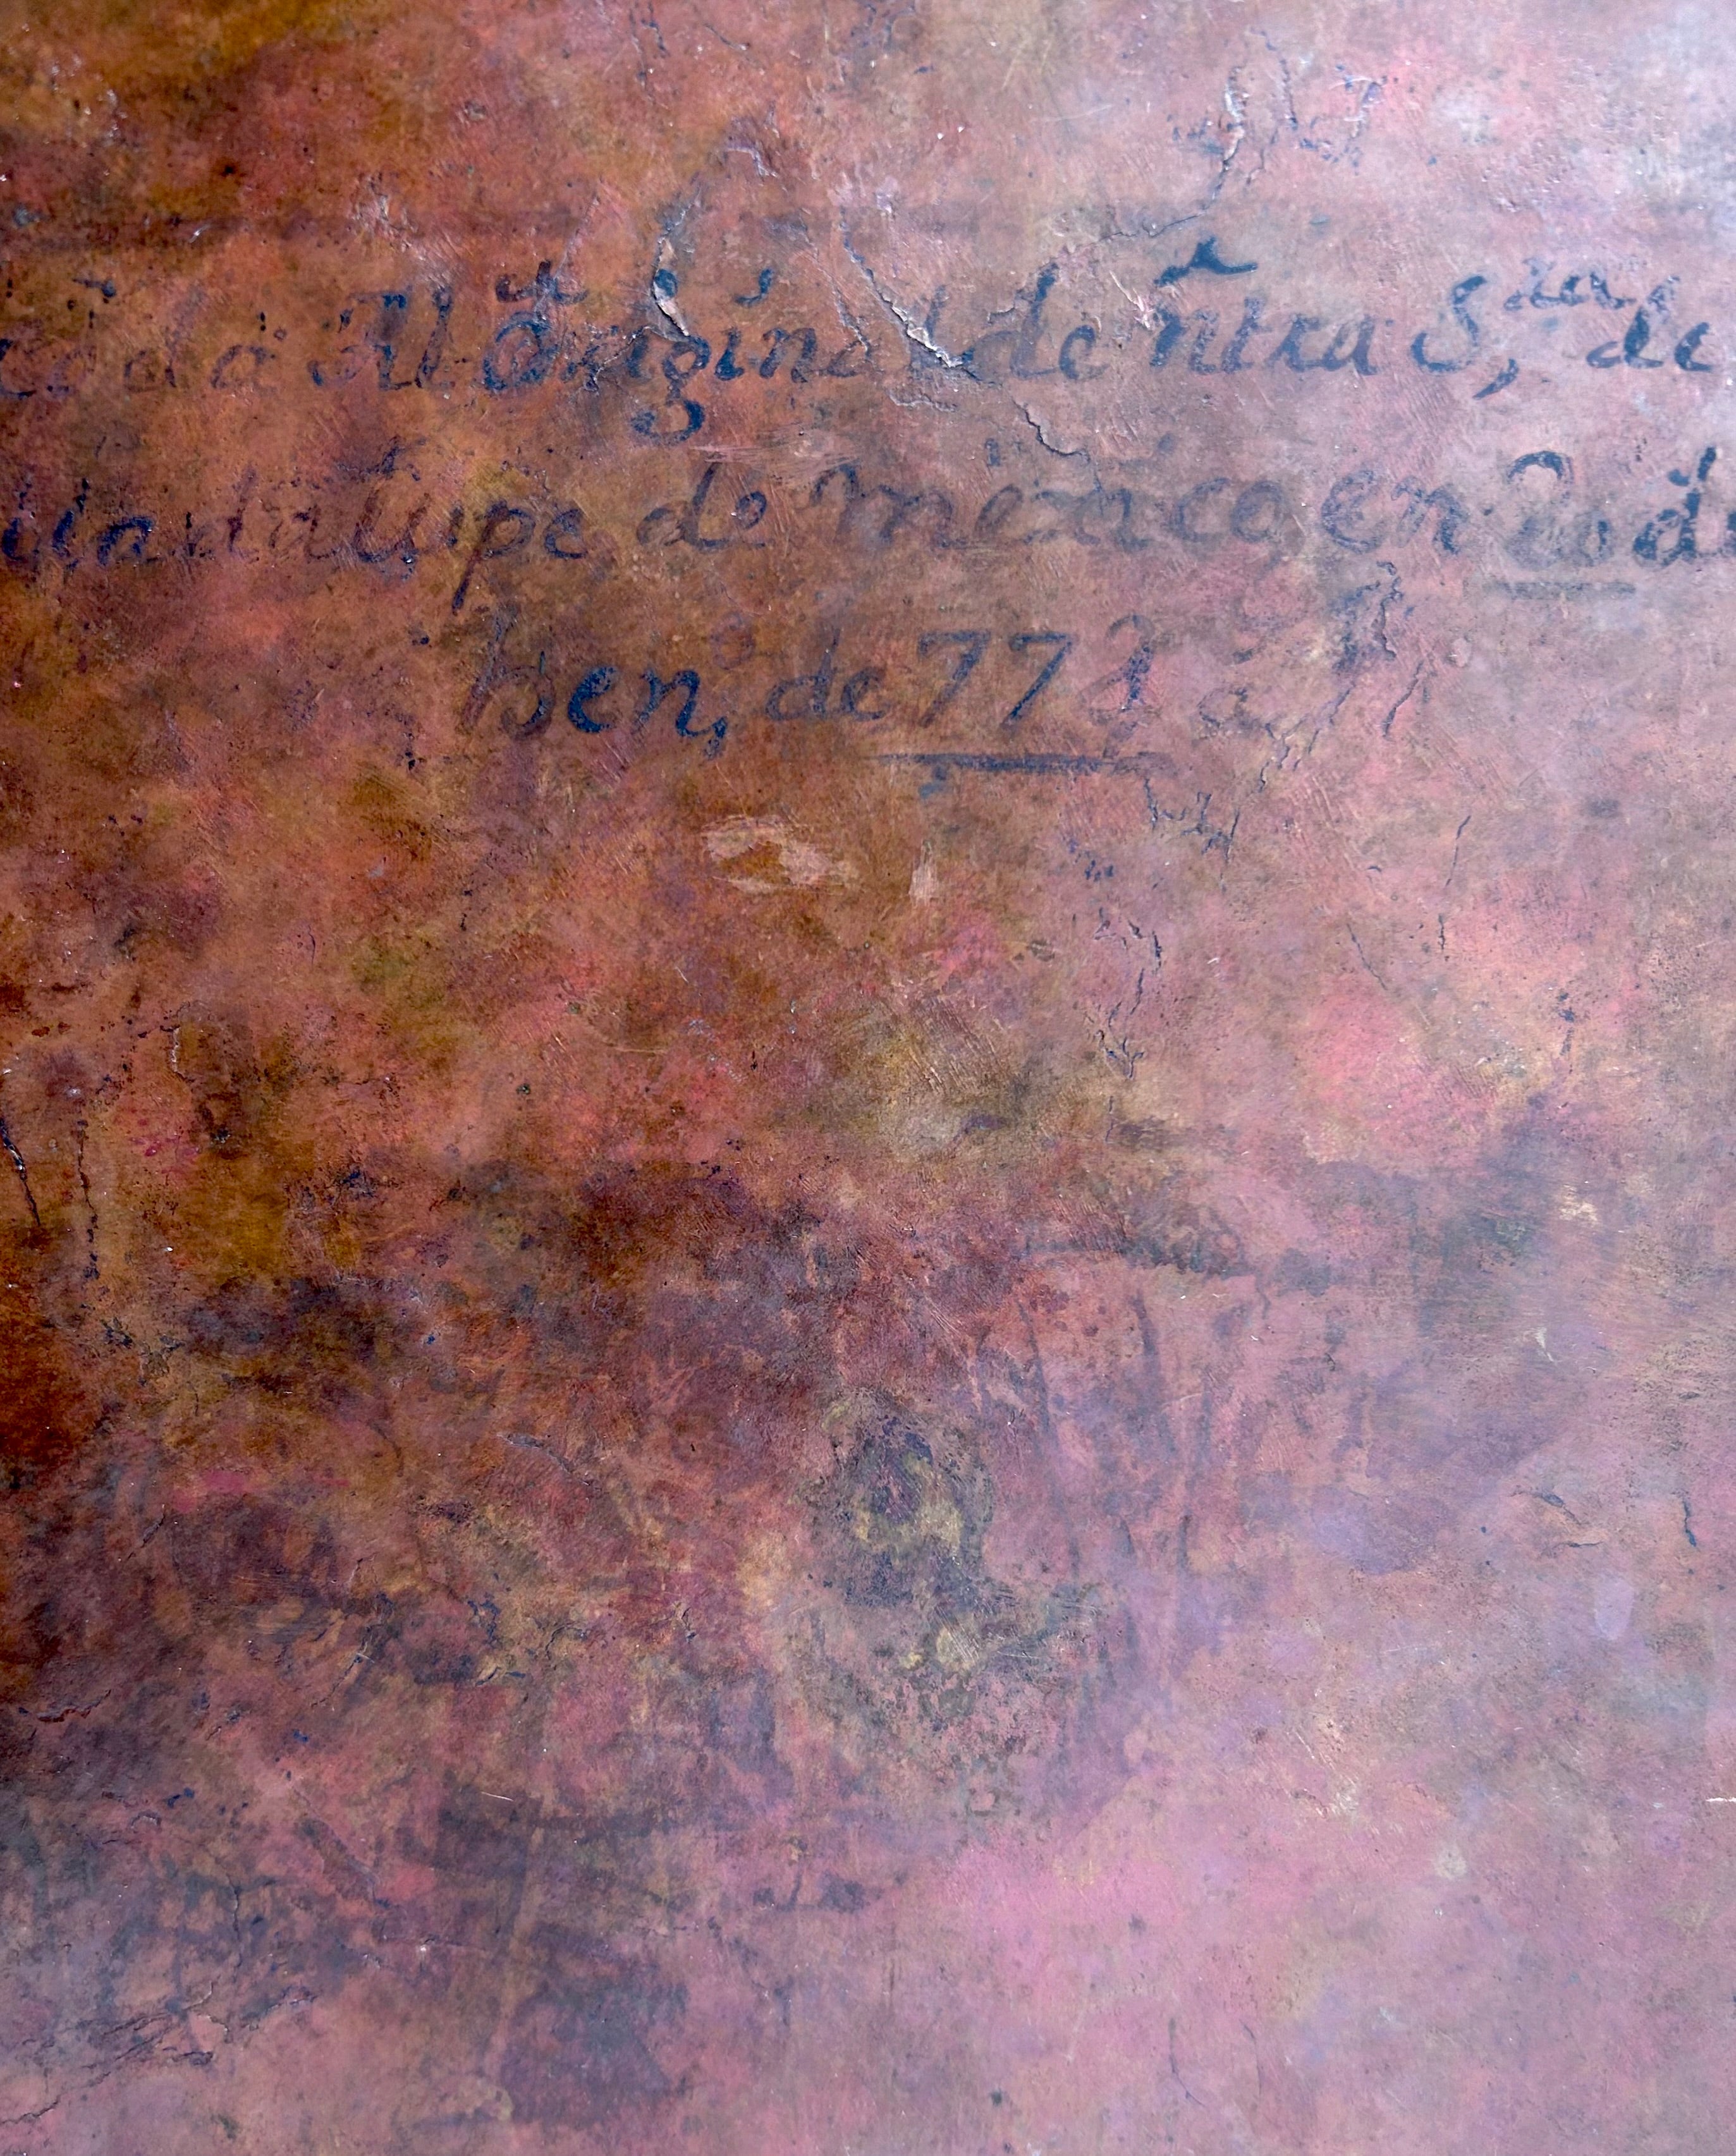 cado Al Original de ñtra S,ra de
uadalupe de mexico en 20 d
ben, de 772 a